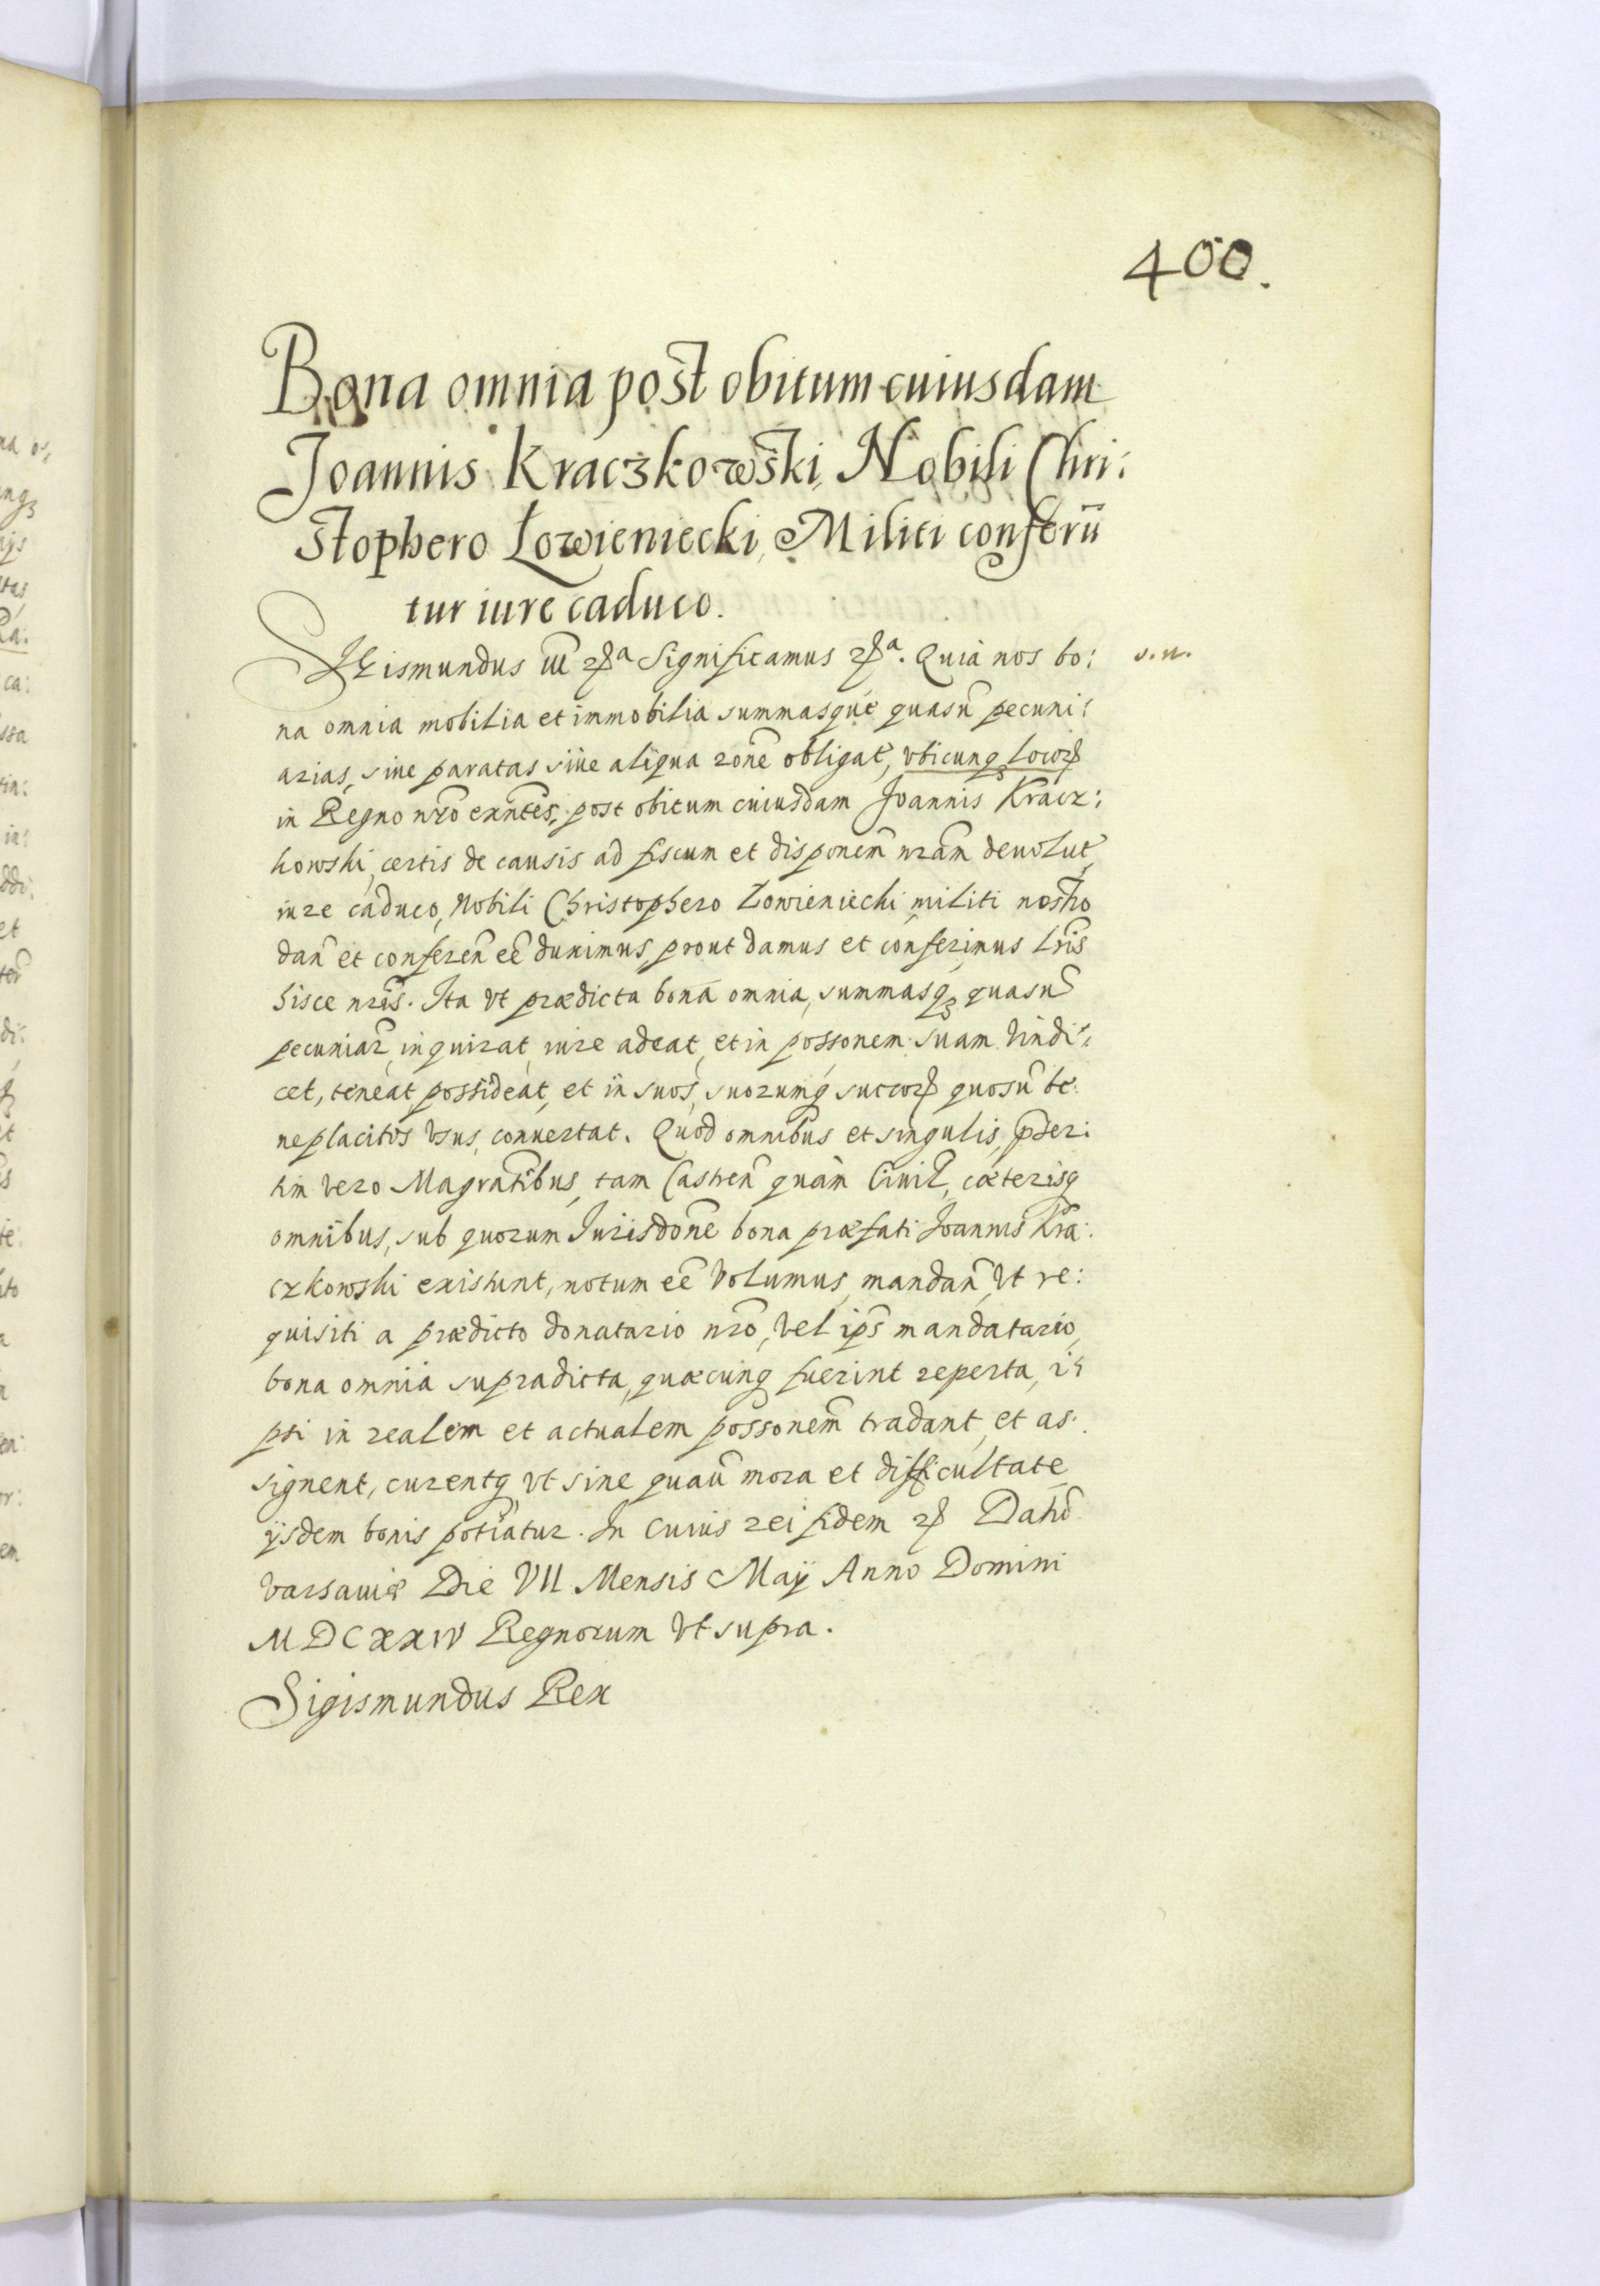 400.
Bona omnia post obitum cuiusdam
Joannis Kraczkowski, Nobili Chri:
stophero Łowieniecki, Militi conferũ
tur iure caduco.
Sigismundus III etc.ª Significamus etc.ª. Quia nos bo: s.n.
na omnia mobilia et immobilia summasque quasũ pecuni:
arias, siue paratas siue aliqua rõne obligat̃, vbicunq locor̃
in Regno nrõ exñtes, post obitum cuiusdam Joannis Kracz:
kowski, certis de causis ad fiscum et disponem̃ nrãm deuolut̃
iure caduco, Nobili Christophero Łowieniecki, militi nostro
dañ et conferen̄ eẽ duximus, prout damus et conferimus lrĩs
hisce nrĩs. Ita vt prædicta bona omnia, summasq, quasũ
pecuniar̃, inquirat, iure adeat, et in possonem suam vindi:
cet, teneat, possideat, et in suos, suorumq succor̃ quosũ be:
neplacitos vsus, conuertat. Quod omnibus et singulis, pser̃:
tim vero Magratĩbus, tam Castreñ quàm Ciuil̃, cæterisq
omnibus, sub quorum Jurisdoñe bona præfati Joannis Kra:
czkowski existunt, notum eẽ volumus, mandañ, vt re:
quisiti a prædicto donatario nrõ, vel ipš mandatario,
bona omnia supradicta, quæcunq fuerint reperta, i:
psi in realem et actualem possonem̃ tradant, et as:
signent, curentq vt sine quauĩ mora et difficultate
ijsdem bonis potiatur. In cuius rei fidem etc. Datũ
Varsauiæ Die VII Mensis Maij Anno Domini
MDCXXIV Regnorum vt supra.
Sigismundus Rex